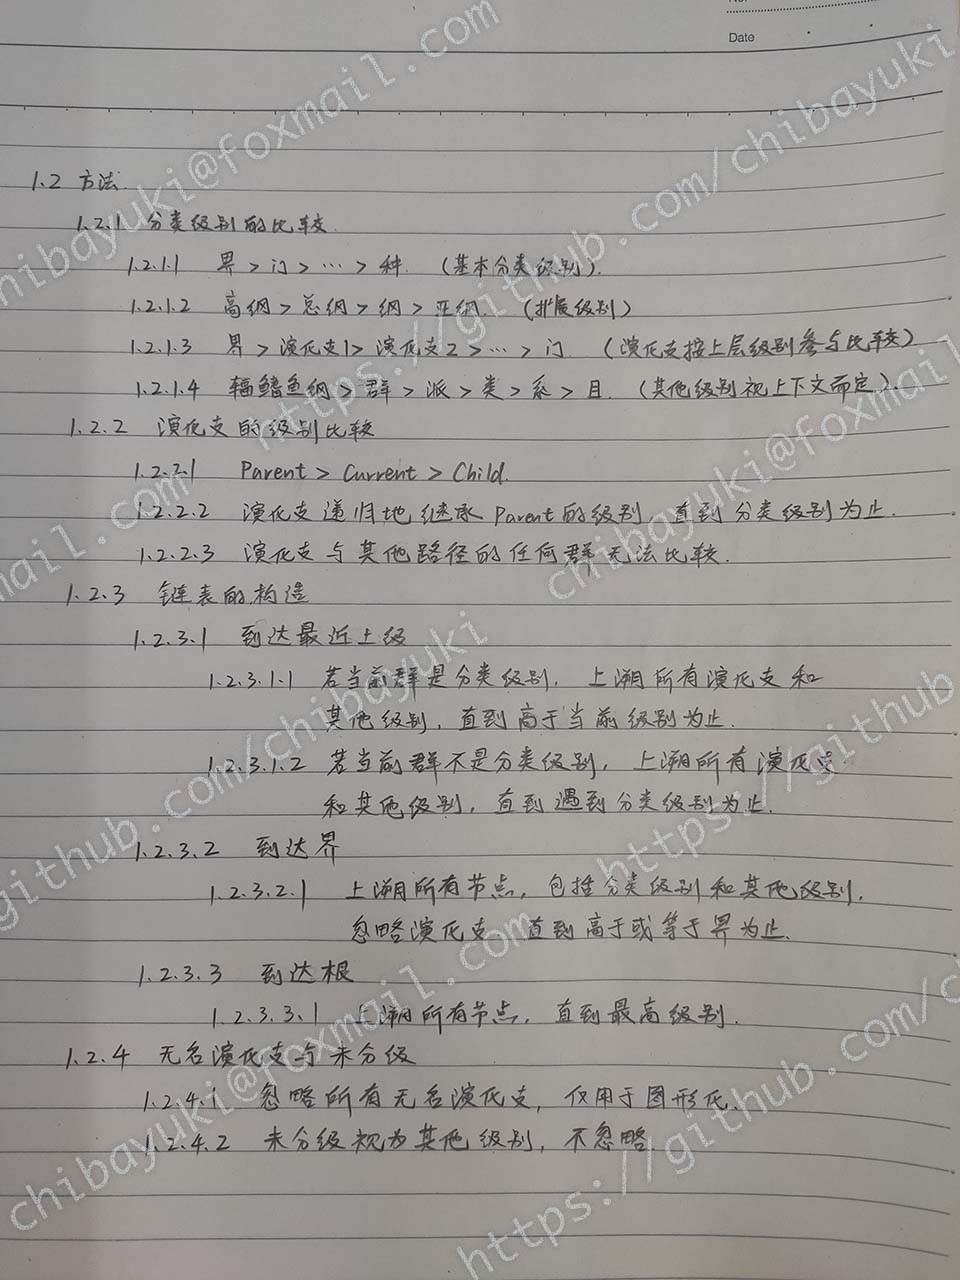 No
Date
1.2 方法.
1.2.1 分类级别的比较.
1.2.1.1 界 > 门 > … > 种. (基本分类级别).
1.2.1.2 高纲 > 总纲 > 纲 > 亚纲. (扩展级别)
1.2.1.3 界 > 演化支1 > 演化支2 > … > 门 (演化支按上层级别参与比较)
1.2.1.4 辐鳍鱼纲 > 群 > 派 > 类 > 系 > 目. (其他级别视上下文而定).
1.2.2 演化支的级别比较
1.2.2.1 Parent > Current > Child.
1.2.2.2 演化支递归地继承Parent的级别, 直到分类级别为止.
1.2.2.3 演化支与其他路径的任何群无法比较.
1.2.3 链表的构造
1.2.3.1 到达最近上级
1.2.3.1.1 若当前群是分类级别, 上溯所有演化支和
其他级别, 直到高于当前级别为止.
1.2.3.1.2 若当前群不是分类级别, 上溯所有演化支
和其他级别, 直到遇到分类级别为止.
1.2.3.2 到达界
1.2.3.2.1 上溯所有节点, 包括分类级别和其他级别,
忽略演化支. 直到高于或等于界为止.
1.2.3.3 到达根
1.2.3.3.1 上溯所有节点, 直到最高级别.
1.2.4 无名演化支与未分级
1.2.4.1 忽略所有无名演化支, 仅用于图形化.
1.2.4.2 未分级视为其他级别, 不忽略.
chibayuki@foxmail.com
https://github.com/chibayuki